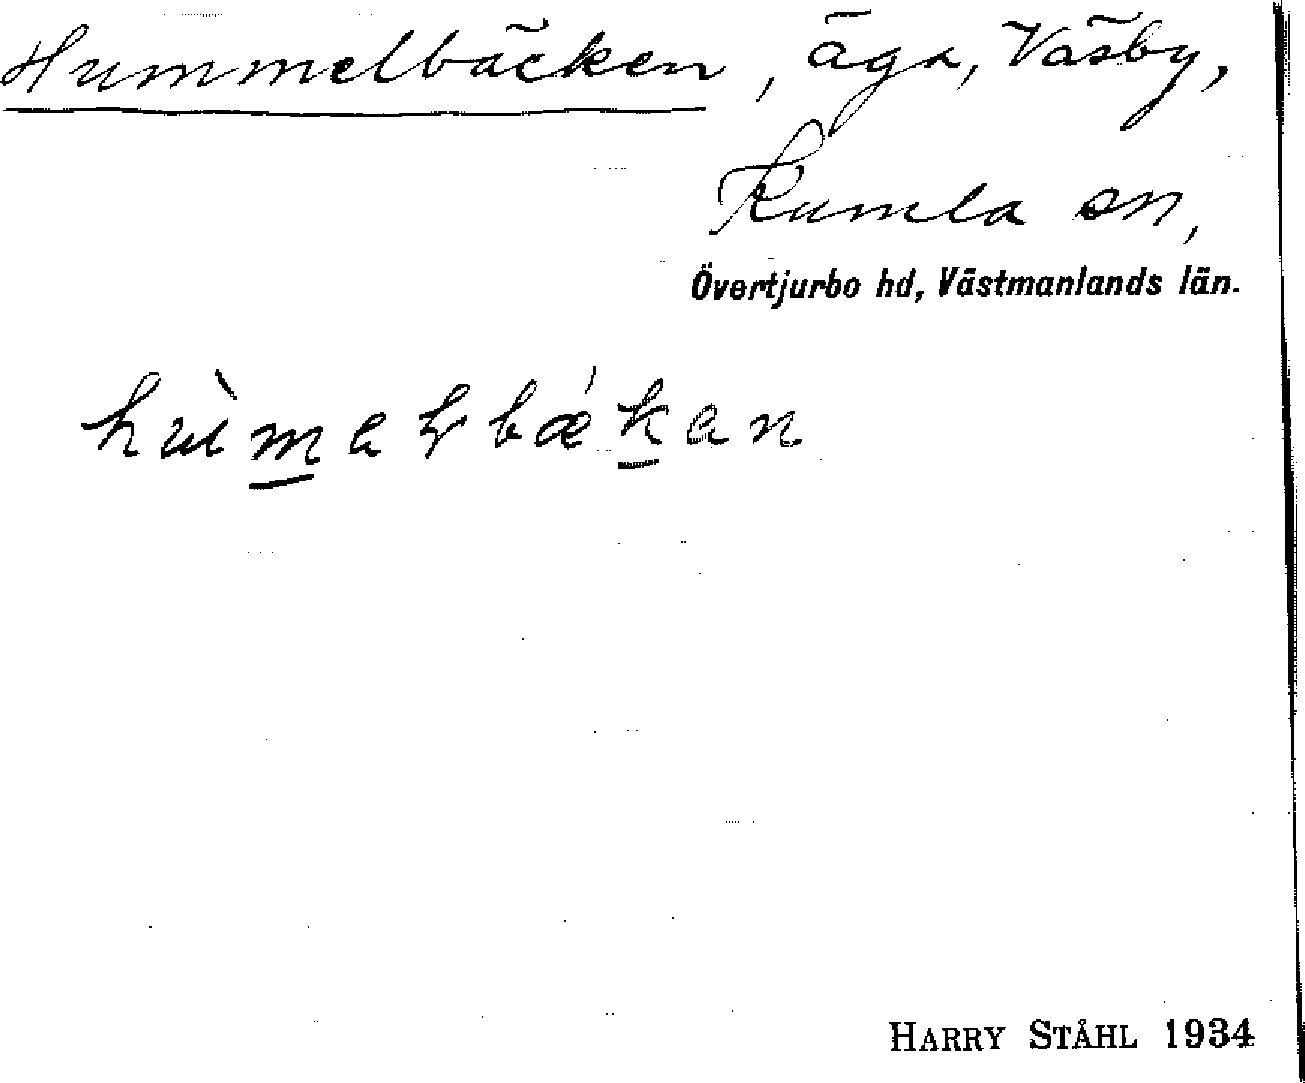 Hummelbäcken, äga, Väsby,
Kumla sn,
Övertjurbo hd, Västmanlands län.
HARRY STÅHL 1934